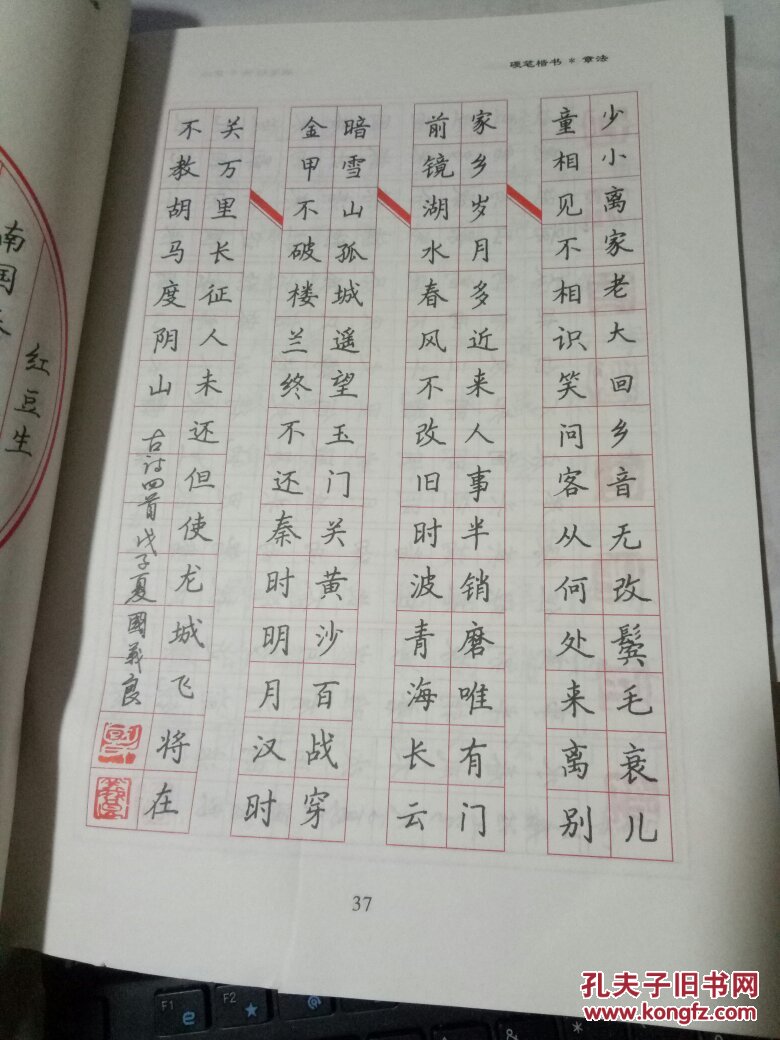 硬笔楷书 * 章法
少小离家老大回乡音无改鬓毛衰儿
童相见不相识笑问客从何处来离别
家乡岁月多近来人事半销磨唯有门
前镜湖水春风不改旧时波青海长云
暗雪山孤城遥望玉门关黄沙百战穿
金甲不破楼兰终不还秦时明月汉时
关万里长征人未还但使龙城飞将在
不教胡马度阴山
古诗四首戊子夏國義良
37
红豆生
南国
F1
F2
孔夫子旧书网
www.kongfz.com